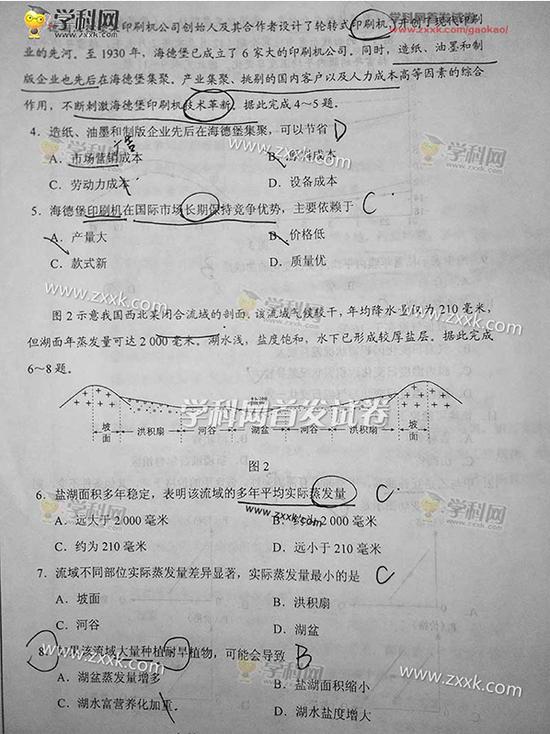 学科网首发试卷
www.zxxk.com/gaokao/
学科网
www.zxxk.com
印刷机公司创始人及其合作者设计了轮转式印刷机,开创了现代印刷
业的先河。至 1930 年,海德堡已成立了 6 家大的印刷机公司。同时,造纸、油墨和制
版企业也先后在海德堡集聚。产业集聚、挑剔的国内客户以及人力成本高等因素的综合
作用,不断刺激海德堡印刷机技术革新。据此完成 4~5 题。
4. 造纸、油墨和制版企业先后在海德堡集聚,可以节省 D
A. 市场营销成本 B. 成本
C. 劳动力成本 D. 设备成本
学科网
www.zxxk.com
5. 海德堡印刷机在国际市场长期保持竞争优势,主要依赖于 C
A. 产量大 B. 价格低
C. 款式新 D. 质量优
学科网
www.zxxk.com
图 2 示意我国西北某闭合流域的剖面。该流域气候较干,年均降水量仅为 210 毫米,
但湖面年蒸发量可达 2 000 毫米。湖水浅,盐度饱和,水下已形成较厚盐层。据此完成
6~8 题。
盐湖
学科网首发试卷
坡面 洪积扇 河谷 湖盆 河谷 洪积扇 坡面
图 2
6. 盐湖面积多年稳定,表明该流域的多年平均实际蒸发量 C
A. 远大于 2 000 毫米 B. 约为 2 000 毫米
C. 约为 210 毫米 D. 远小于 210 毫米
www.zxxk.com
学科网
www.zxxk.com
7. 流域不同部位实际蒸发量差异显著,实际蒸发量最小的是 C
A. 坡面 B. 洪积扇
C. 河谷 D. 湖盆
8. 如果该流域大量种植耐旱植物,可能会导致 B
A. 湖盆蒸发量增多 B. 盐湖面积缩小
C. 湖水富营养化加重 D. 湖水盐度增大
学科网
www.zxxk.com
学科网
www.zxxk.com